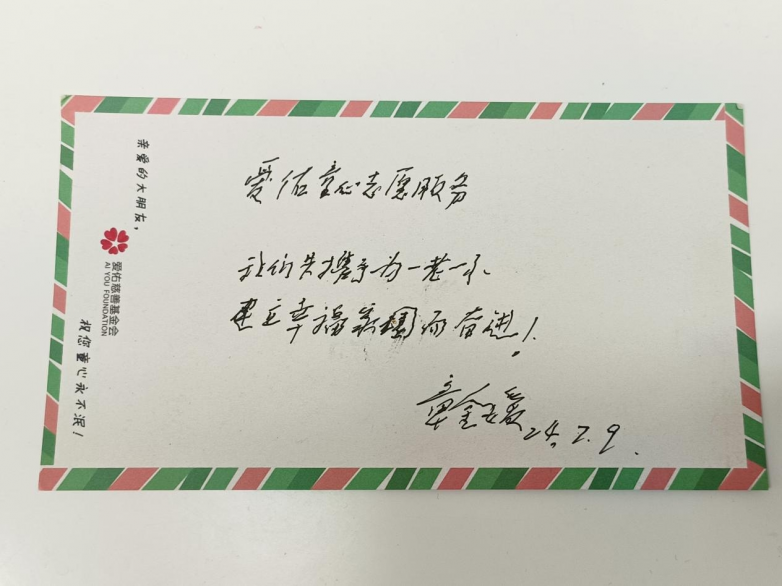 亲爱的大朋友，
爱佑慈善基金会
AI YOU FOUNDATION
祝您童心永不泯！
爱佑童心志愿服务
我们共携手为一老一小
建立幸福家园而奋进！
章金媛 24.7.9.